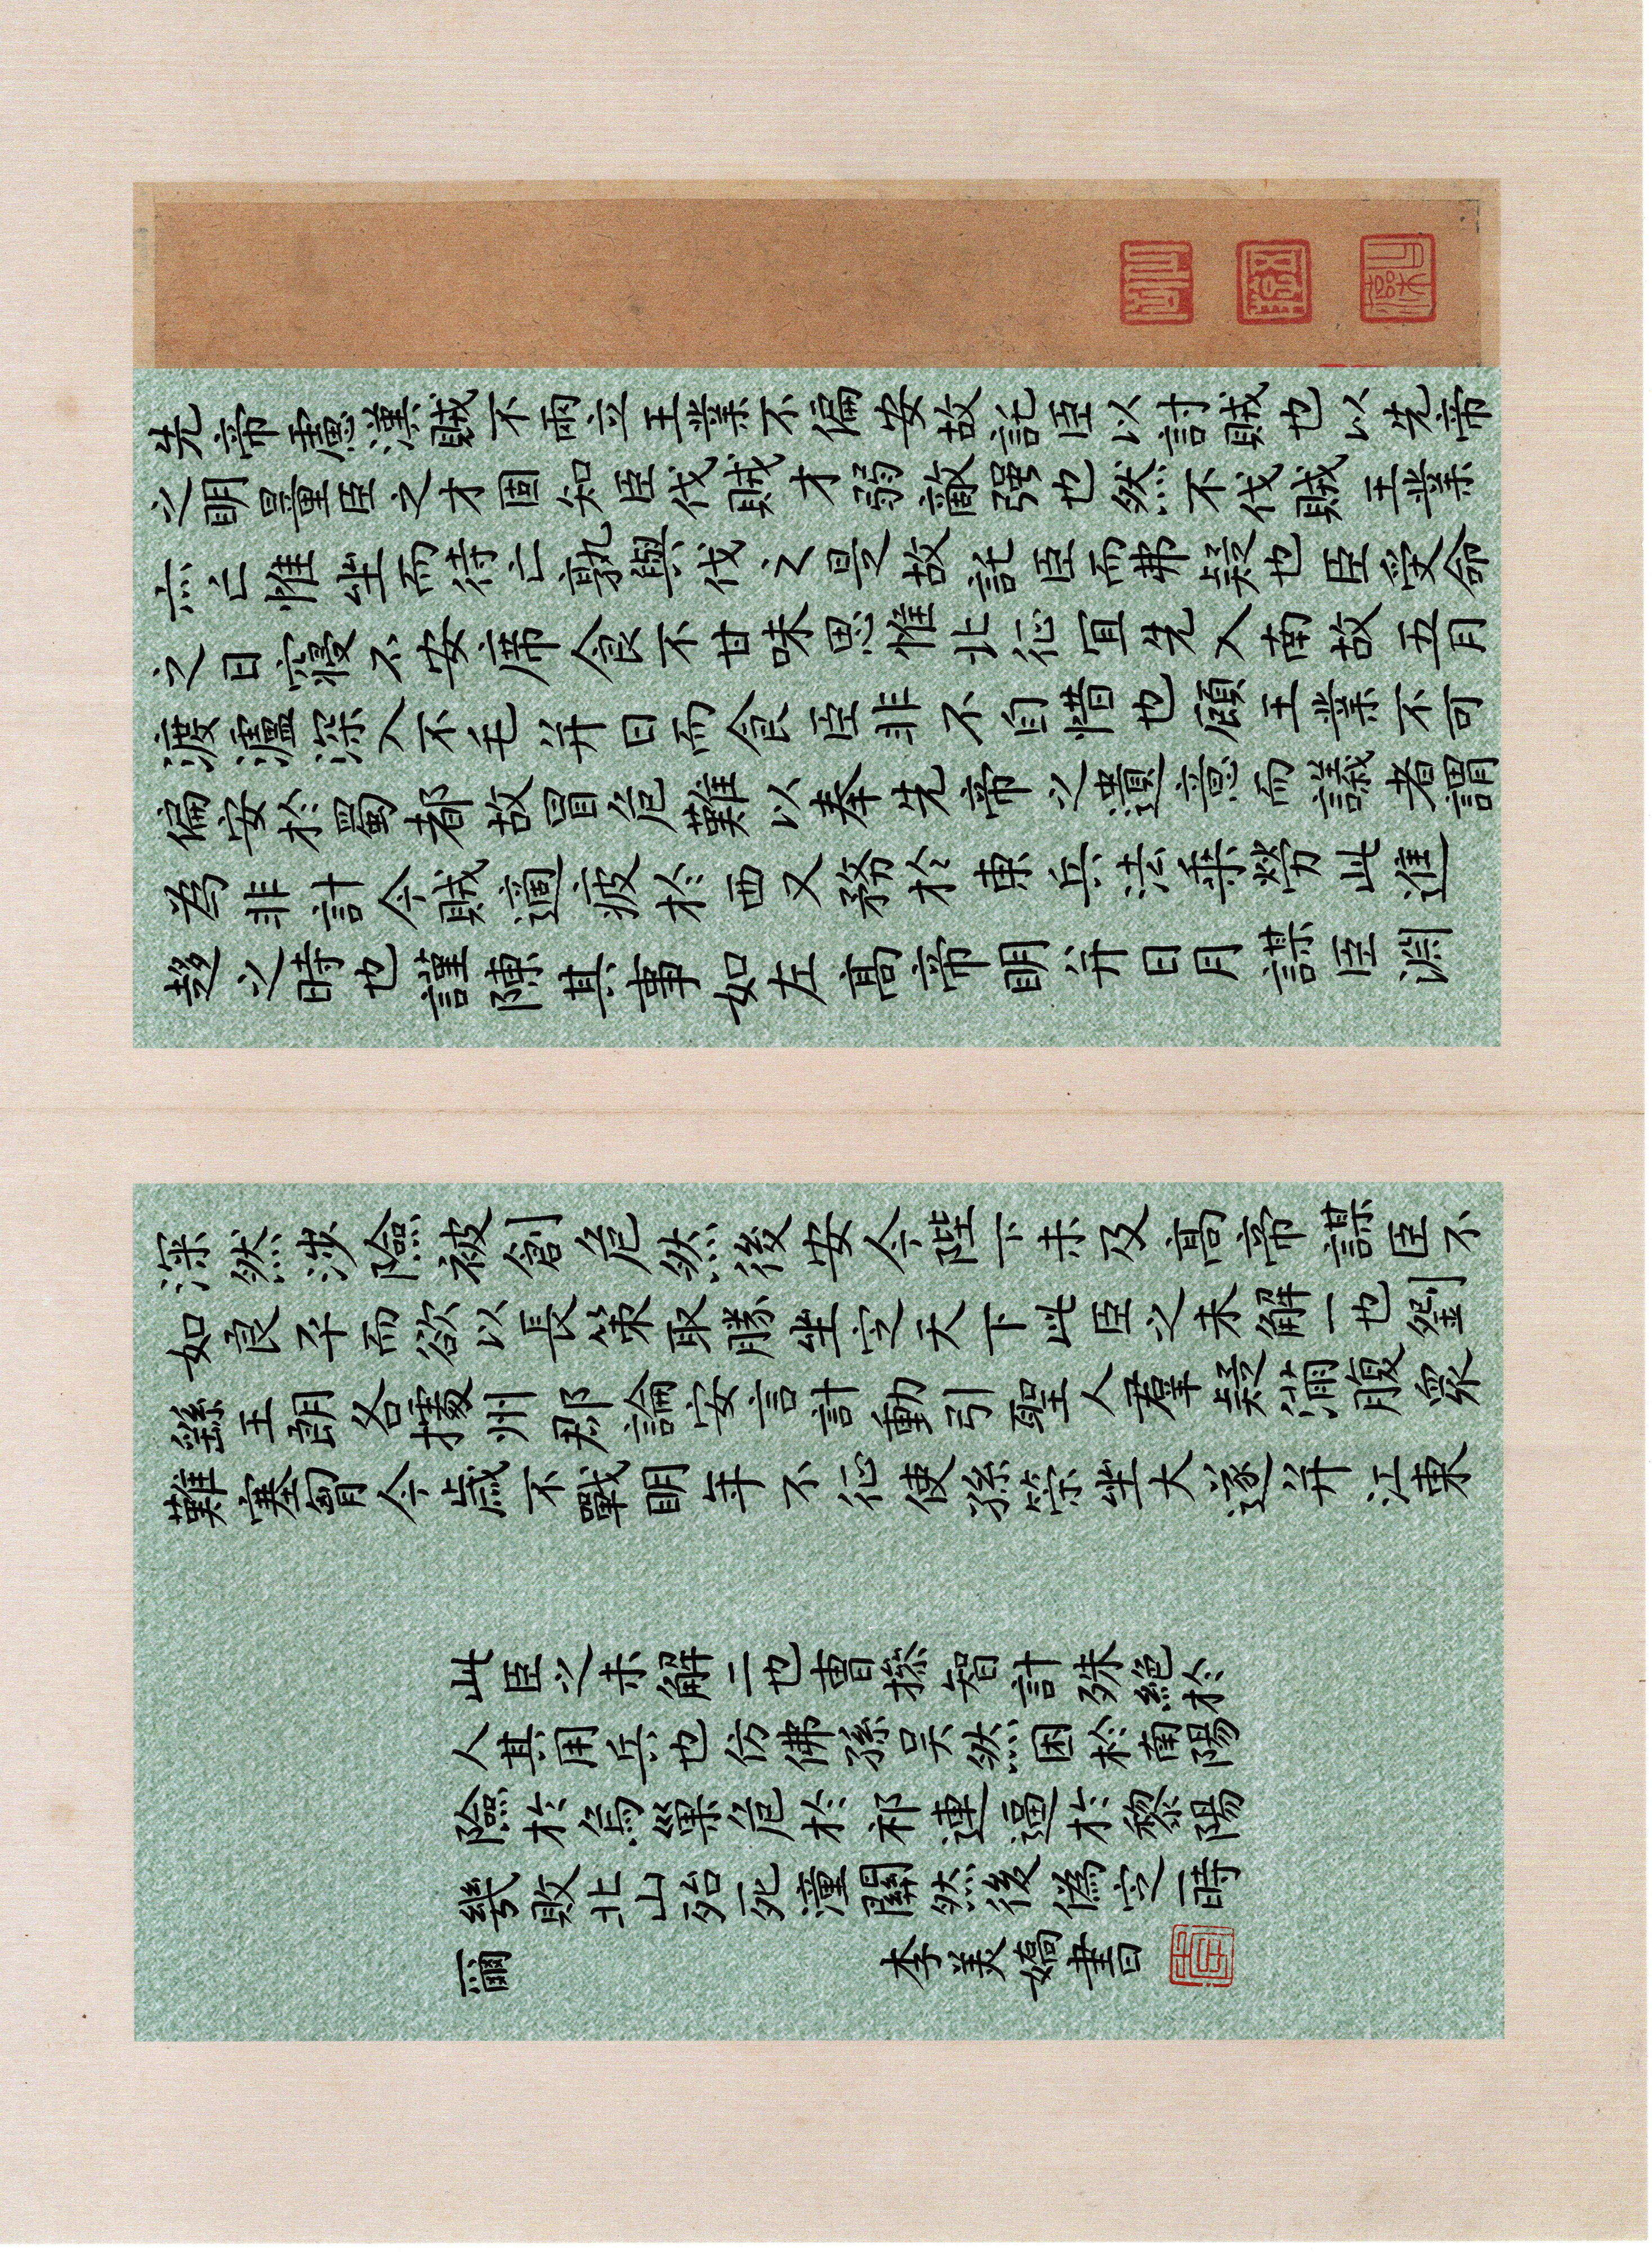 先帝慮漢賊不兩立王業不偏安故託臣以討賊也以先帝
之明量臣之才固知臣伐賊才弱敵强也然不伐賊王業
亦亡惟坐而待亡孰與伐之是故託臣而弗疑也臣受命
之日寢不安席食不甘味思惟北征宜先入南故五月
渡瀘深入不毛并日而食臣非不自惜也顧王業不可
偏安於蜀都故冒危難以奉先帝之遺意而議者謂
為非計今賊適疲於西又務於東兵法乘勞此進
趨之時也謹陳其事如左高帝明并日月謀臣淵
深然涉險被創危然後安今陛下未及高帝謀臣不
如良平而欲以長策取勝坐定天下此臣之未解一也劉
繇王朗各據州郡論安言計動引聖人群疑滿腹眾
難塞胸今歲不戰明年不征使孫策坐大遂并江東
此臣之未解二也曹操智計殊絕於
人其用兵也仿佛孫吳然困於南陽
險於烏巢危於祁連逼於黎陽
幾敗北山殆死潼關然後偽定一時
爾
李美嬌書